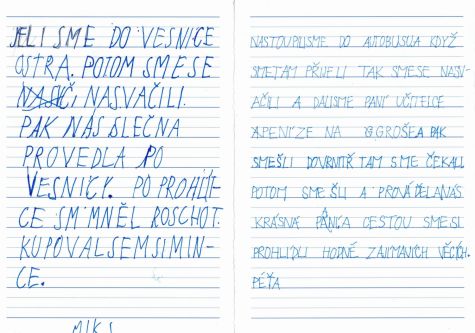 JELI SME DO VESNICE
OSTRA. POTOM SMESE
NASVAČILI.
PAK NÁS SLEČNA
PROVEDLA PO
VESNICY. PO PROHLÍTE
CE SM MNĚL ROSCHOT.
KUPOVAL SEM SI MIN-
CE.
MIKI
NASTOUPILISME DO AUTOBUSUA KDYŽ
SMETAM PŘIJELI TAK SMESE NASV-
AČILI A DALISME PANÍ UČITELCE
APENIZE NA GROŠEA PAK
SMEŠLI DOVNITŘ TAM SME ČEKALI
POTOM SME ŠLI A PROVÁDĚLANÁS
KRÁSNÁ PÁNÍA CESTOU SMESI
PROHLÍDLI HODNĚ ZAJIMAVICH VĚCÍCH.
PÉŤA